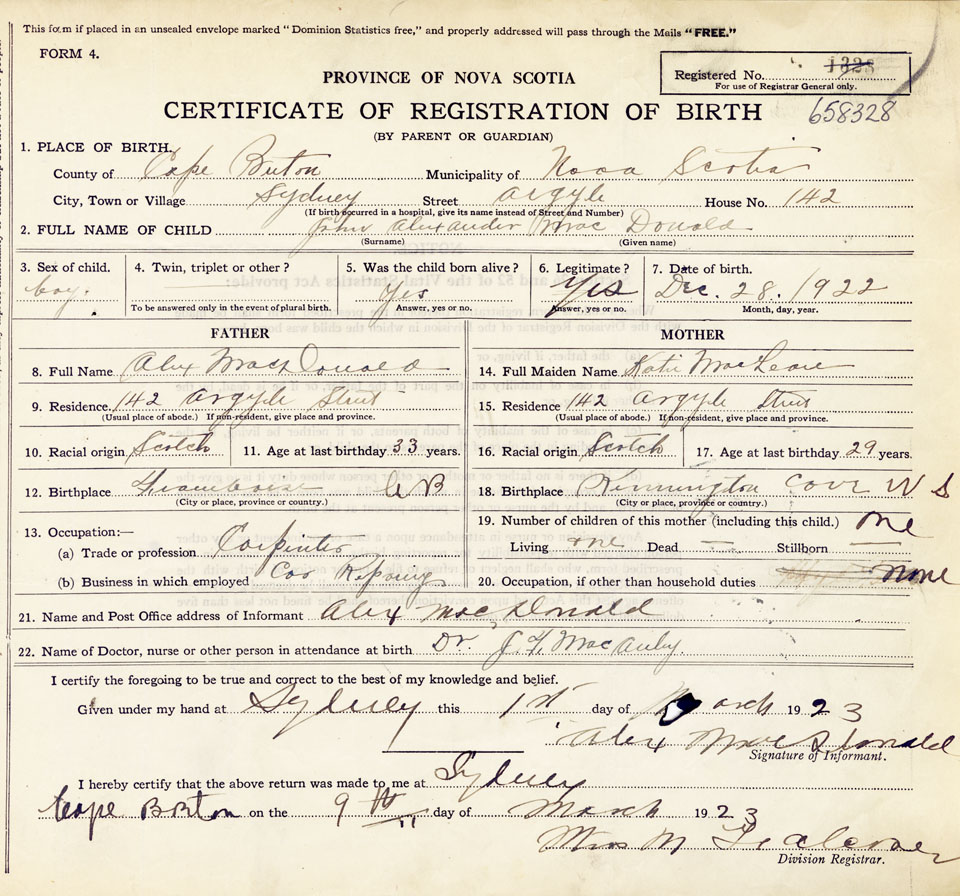 This form if placed in an unsealed envelope marked "Dominion Statistics free," and properly addressed will pass through the Mails "FREE."
FORM 4.
PROVINCE OF NOVA SCOTIA
Registered No. 1323
For use of Registrar General only.
CERTIFICATE OF REGISTRATION OF BIRTH 658328
(BY PARENT OR GUARDIAN)
1. PLACE OF BIRTH.
County of Cape Breton Municipality of Nova Scotia
City, Town or Village Sydney Street Argyle House No. 142
(If birth occurred in a hospital, give its name instead of Street and Number)
2. FULL NAME OF CHILD John Alexander Mac Donald
(Surname) (Given name)
3. Sex of child. 4. Twin, triplet or other? 5. Was the child born alive? 6. Legitimate? 7. Date of birth.
boy. Yes Yes Dec. 28. 1922
To be answered only in the event of plural birth. Answer, yes or no. Answer, yes or no. Month, day, year.
FATHER MOTHER
8. Full Name Alex MacDonald 14. Full Maiden Name Katie MacLean
9. Residence. 142 Argyle Street 15. Residence 142 Argyle Street
(Usual place of abode.) If non-resident, give place and province. (Usual place of abode.) If non-resident, give place and province.
10. Racial origin Scotch 11. Age at last birthday 33 years. 16. Racial origin Scotch 17. Age at last birthday 29 years.
12. Birthplace CB 18. Birthplace Kennington Cove N S
(City or place, province or country.) (City or place, province or country.)
19. Number of children of this mother (including this child.) one
13. Occupation:—
(a) Trade or profession Carpenter Living one Dead — Stillborn —
(b) Business in which employed Car 20. Occupation, if other than household duties none
21. Name and Post Office address of Informant Alex Mac Donald
22. Name of Doctor, nurse or other person in attendance at birth Dr. J. MacAuley.
I certify the foregoing to be true and correct to the best of my knowledge and belief.
Given under my hand at Sydney this 1st day of March 1923
Alex MacDonald
Signature of Informant.
I hereby certify that the above return was made to me at Sydney
Cape Breton on the 9th day of March 1923
Mrs M Falconer
Division Registrar.